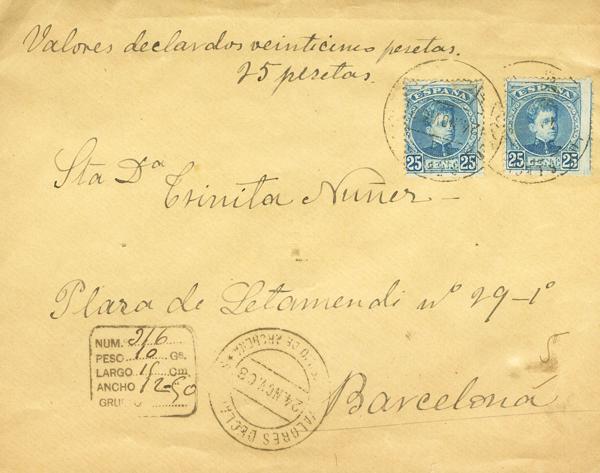 Valores declardos veinticinco pesetas.
25 pesetas.
ESPAÑA
25 CENT. 25
ESPAÑA
25 CENT. 25
Sta Dª
Trinita Nuñez
Plaza de Letamendi nº 29-1º
Barcelona
NUM. 216
PESO 10 Gs.
LARGO 15 Cm
ANCHO 12-50
GRU
DE ARCHENA
24 NOV. 03
VALORES DECLA